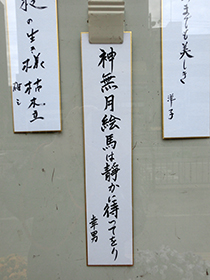 までも美しき
洋子
神無月絵馬は静かに待ってをり
幸男
の生の様枯木立